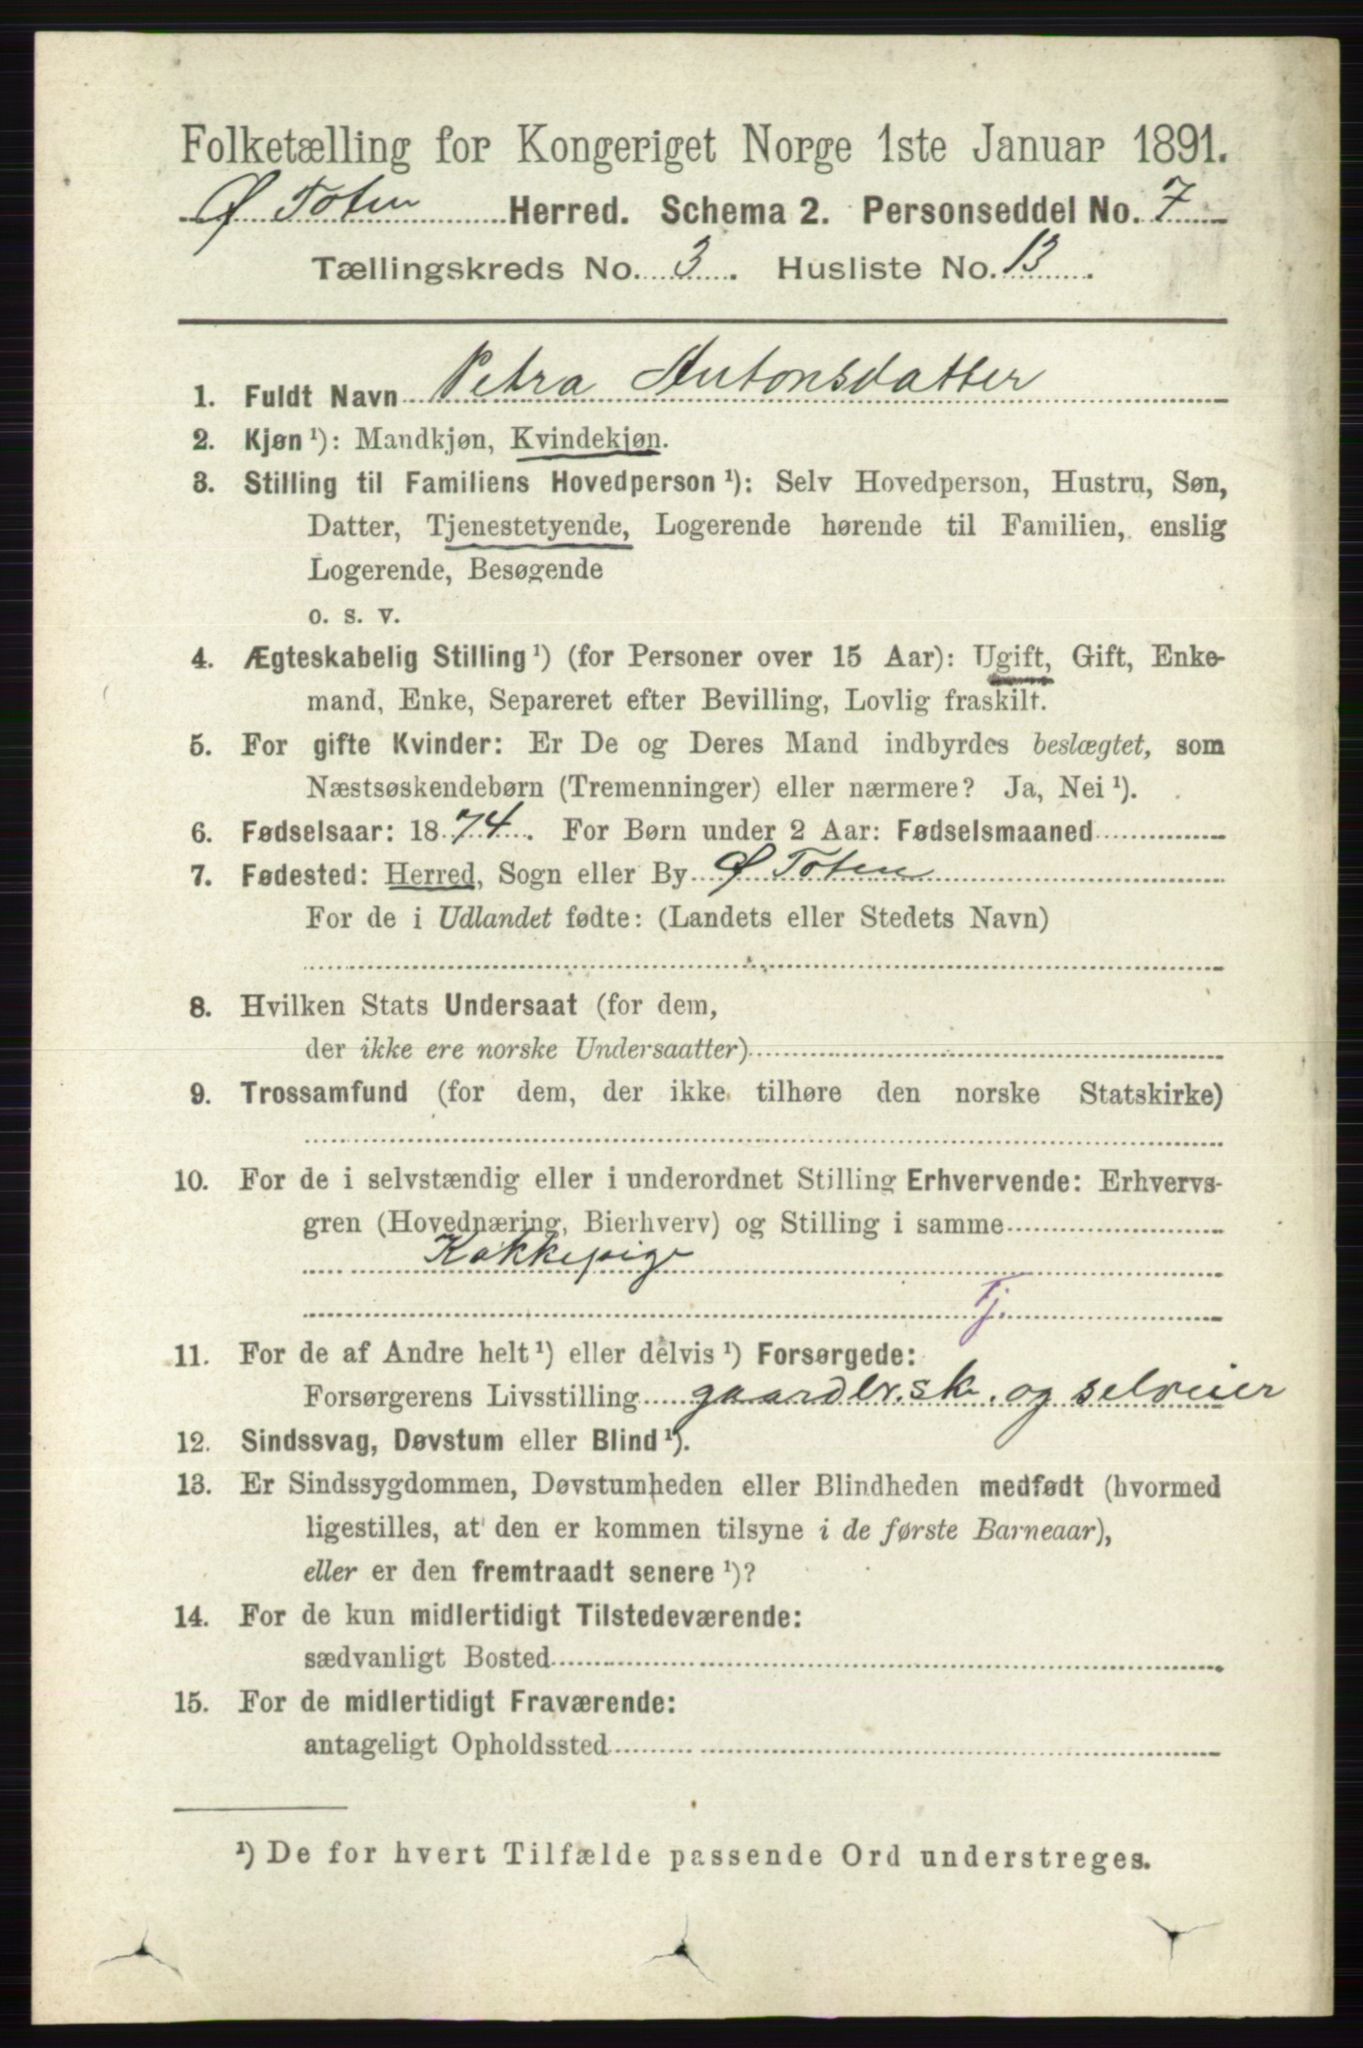 Folketælling for Kongeriget Norge 1ste Januar 1891.
Ø Toten Herred. Schema 2. Personseddel No. 7
Tællingskreds No. 3. Husliste No. 13.
1. Fuldt Navn Petra Antonsdatter
2. Kjøn ¹): Mandkjøn, Kvindekjøn.
3. Stilling til Familiens Hovedperson ¹): Selv Hovedperson, Hustru, Søn,
Datter, Tjenestetyende, Logerende hørende til Familien, enslig
Logerende, Besøgende
o. s. v.
4. Ægteskabelig Stilling ¹) (for Personer over 15 Aar): Ugift, Gift, Enke-
mand, Enke, Separeret efter Bevilling, Lovlig fraskilt.
5. For gifte Kvinder: Er De og Deres Mand indbyrdes beslægtet, som
Næstsøskendebørn (Tremenninger) eller nærmere? Ja, Nei ¹).
6. Fødselsaar: 1874. For Børn under 2 Aar: Fødselsmaaned
7. Fødested: Herred, Sogn eller By Ø Toten
For de i Udlandet fødte: (Landets eller Stedets Navn)
8. Hvilken Stats Undersaat (for dem,
der ikke ere norske Undersaatter)
9. Trossamfund (for dem, der ikke tilhøre den norske Statskirke)
10. For de i selvstændig eller i underordnet Stilling Erhvervende: Erhvervs-
gren (Hovednæring, Bierhverv) og Stilling i samme
Kokkepige
Tj.
11. For de af Andre helt ¹) eller delvis ¹) Forsørgede:
Forsørgerens Livsstilling gaardbr.sk. og selveier
12. Sindssvag, Døvstum eller Blind ¹).
13. Er Sindssygdommen, Døvstumheden eller Blindheden medfødt (hvormed
ligestilles, at den er kommen tilsyne i de første Barneaar),
eller er den fremtraadt senere ¹)?
14. For de kun midlertidigt Tilstedeværende:
sædvanligt Bosted
15. For de midlertidigt Fraværende:
antageligt Opholdssted
¹) De for hvert Tilfælde passende Ord understreges.